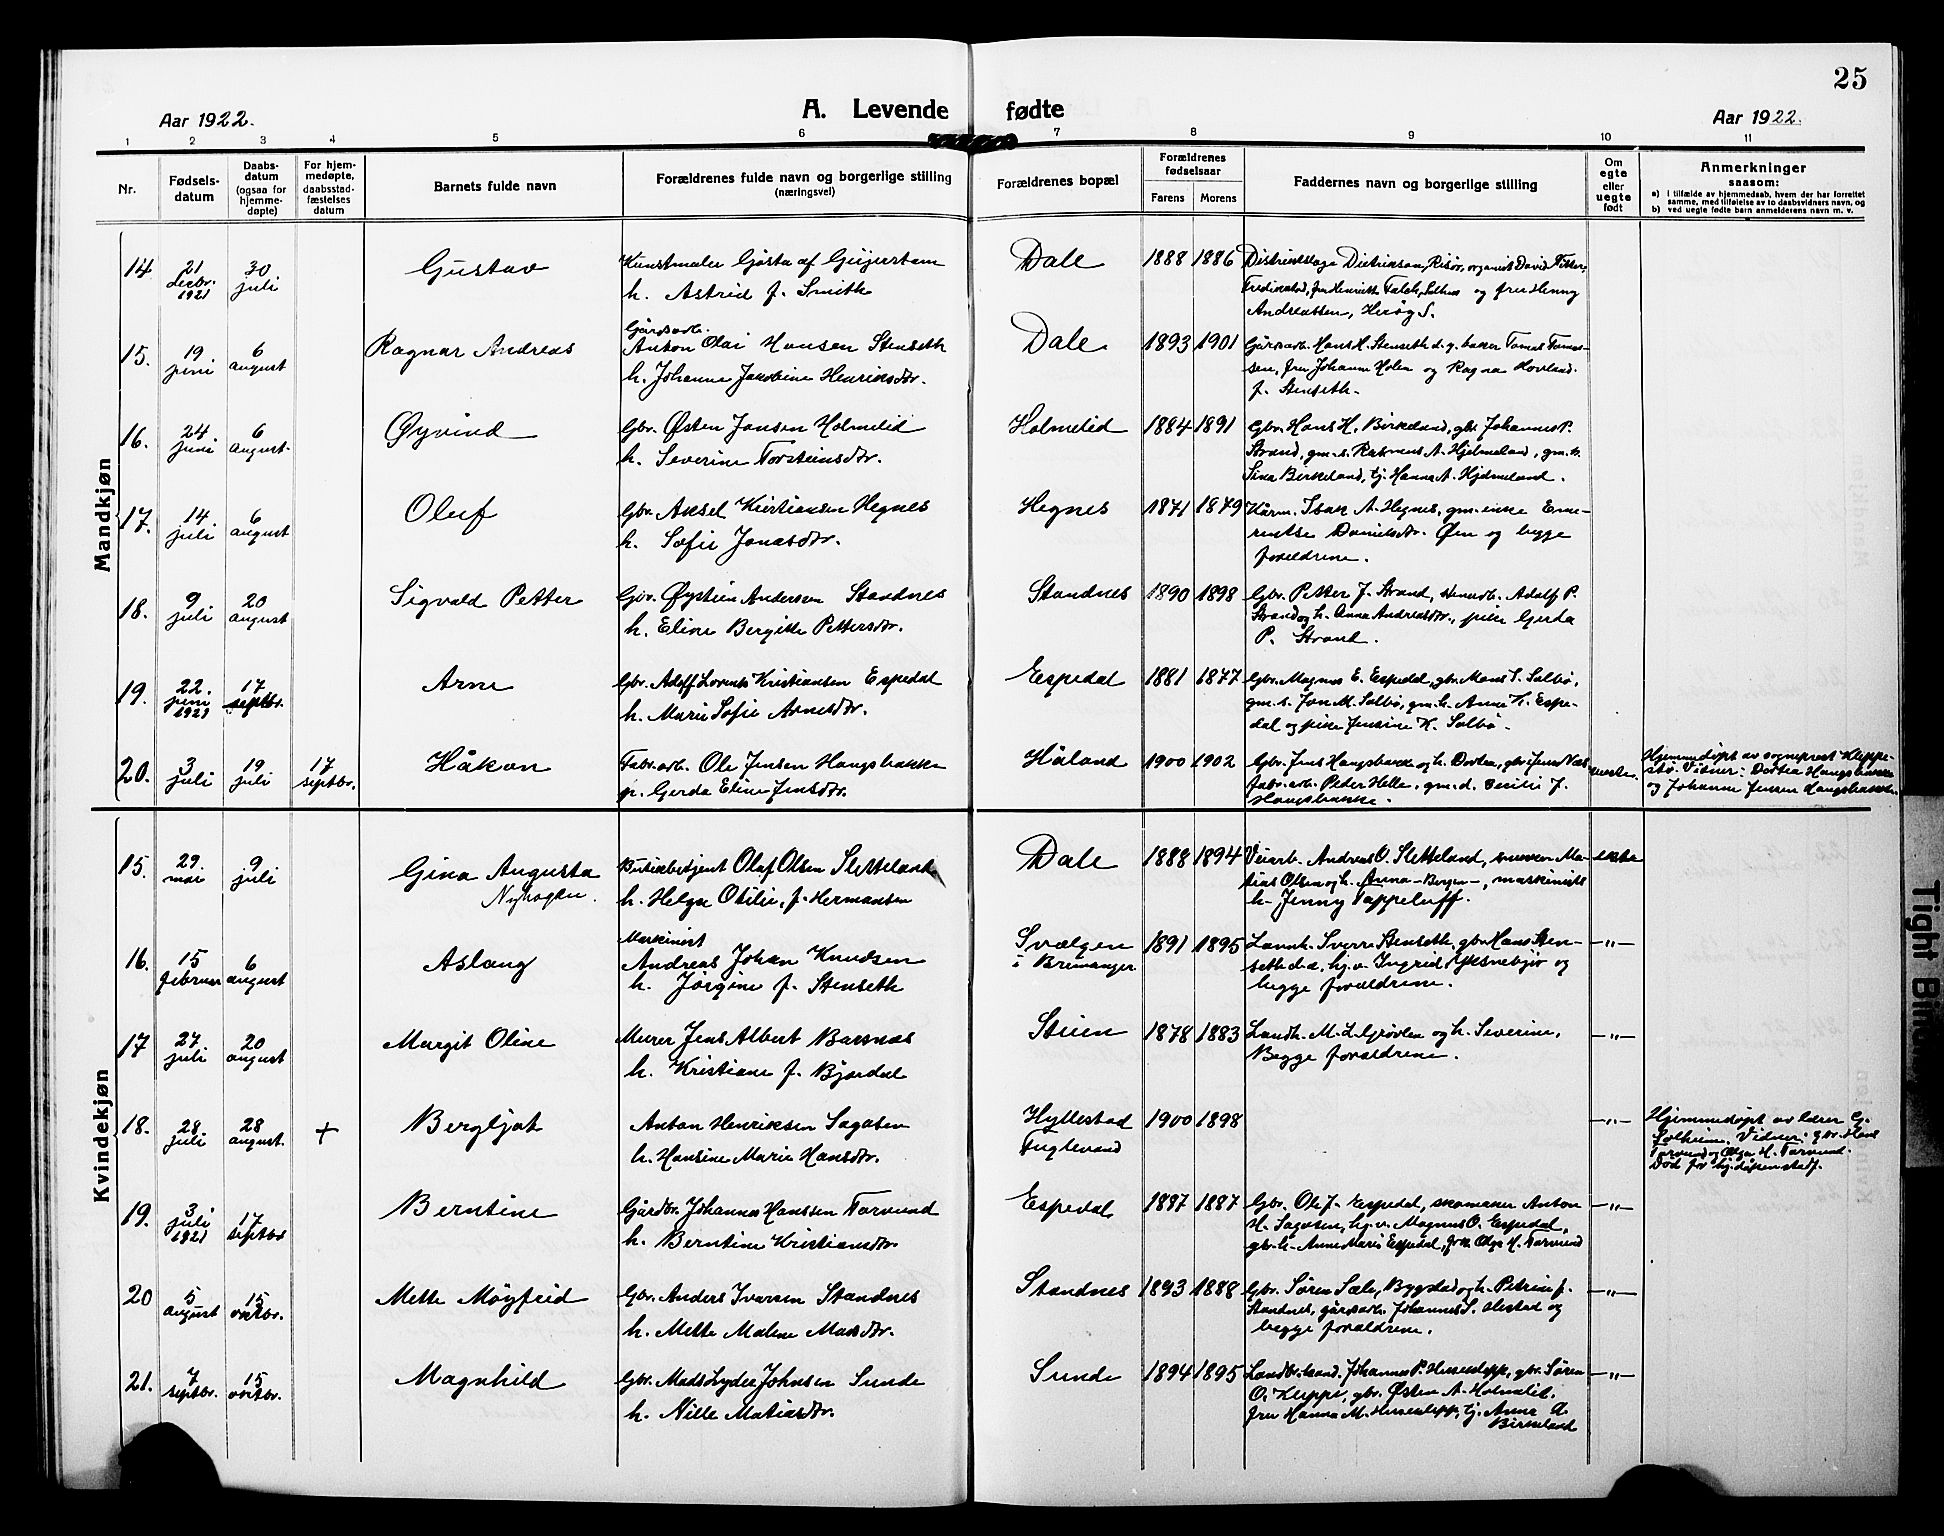 25
Aar 1922. A. Levende fødte Aar 1922.
1 2 3 4 5 6 7 8 9 10 11
Nr.
Fødsels-
datum
Daabs-
datum
(ogsaa for
hjemme-
døpte)
For hjem-
medøpte,
daabsstad-
fæstelses
datum
Barnets fulde navn
Forældrenes fulde navn og borgerlige stilling
(næringsvei)
Forældrenes bopæl
Forældrenes
fødselsaar
Farens Morens
Faddernes navn og borgerlige stilling
Om
egte
eller
uegte
født
Anmerkninger
saasom:
a) i tilfælde av hjemmedaab, hvem der har forrettet
samme, med tilføielse av to daabsvidners navn, og
b) ved uegte fødte barn anmelderens navn m. v.
Mandkjøn
14 21 decbr. 1921 30 juli Gustav
Kunstmaler Gösta af Geijerstam
h. Astrid f. Smith
Dale 1888 1886
Andreassen,
15. 19 juni 6 august Ragnar Andreas
Gårdsarb.
Anton Olai Hansen Stenseth
h. Johanne Jakobine Henriksdtr.
Dale 1893 1901
Gårdsarb. Hans H. Stenseth d. y. baker Tomas Tomas-
sen, fru Johanne Holen og Ragna Hovland
f. Stenseth.
16. 24 juni 6 august Øyvind
Gbr. Østen Jonsen Holmelid
h. Severine Torsteinsdtr.
Holmelid 1884 1891
Gbr. Hans H. Birkeland, gbr. Johannes P.
Strand, gm. s. Rasmus A. Hjelmeland, gm. h.
Sina Birkeland, tj. Hanna A. Hjelmeland.
17. 14 juli 6 august Oluf
Gbr. Aksel Kristiansen Hegnes
h. Sofie Jonasdtr.
Hegnes 1871 1879
Kårm. Isak A. Hegnes, gm. enke Eme-
rentse Danielsdtr. Øen og begge
forældrene.
18. 9 juli 20 august Sigvald Petter
Gbr. Øystein Andersen Standnes
h. Eline Bergitte Pettersdtr.
Standnes 1890 1898
Gbr. Petter J. Strand, Adolf P.
Strand og h. Anna Andreasdtr., pike Gerda
P. Strand.
19. 22. juni 1921 17 septbr. Arne
Gbr. Adolf Lorents Kristiansen Espedal
h. Marie Sofie Arnesdtr.
Espedal 1881 1877
Gbr. Magnus E. Espedal, gbr. Mons S. Solbø,
gm. s. Jon M. Solbø, gm. h. Anne K. Espe-
dal og pike Jensine K. Solbø.
20. 3 juli 19 juli 17 septbr. Håkon
Fabr. arb. Ole Jensen Haugsbakke
p. Gerda Eline Jensdtr.
Håland 1900 1902
Gbr. Jens Haugsbakke og h. Dortea, gbr. Jens
fabr. arb. Peder Helle, gm. d. Cecilie J.
Haugsbakke.
uegte.
Hjemmedøpt av sogneprest Kleppe-
stø. Vidner: Dortea Haugsbakke
og Johanne Jensen Haugsbakke.
Kvindekjøn
15. 29. mai 9 juli Gina Augusta
Butikbetjent Olaf Olsen Sletteland
h. Helga Otilie, f. Hermansen
Dale 1888 1894
Veiarb. Andreas O. Sletteland, snekker Ma-
tias Olsen og h. Anna – Bergen –, maskinist
h. Jenny Pappeluff.
egte
16. 15 februar 6 august Aslaug
Maskinist
Andreas Johan Knudsen
h. Jørgine f. Stenseth
Svælgen
i Bremanger
1891 1895
Landh. Sverre Stenseth, gbr. Hans Sten-
seth d. e., hj. v. Ingrid Yksnebjør og
begge forældrene.
–„–
17 27 juli 20 august Margit Oline
Murer Jens Albert Barsnæs
h. Kristiane f. Bjordal
Steien 1878 1883
Landh. M. L. Grøvlen og h. Severine,
Begge forældrene.
–„–
18. 28 juli 28 august + Bergljot
Anton Henriksen Sagosen
h. Hansine Marie Hansdtr.
Hyllestad
Fuglevand
1900 1898
–„–
Hjemmedøpt av lærer G.
Solheim. Vidner: gbr. Hans
Tarvund og Olga H. Tarvund.
Død før hj.dåpen stadf.
19. 3. juli 1921 17 septbr Berntine
Gårdbr. Johannes Hanssen Tarvund
h. Berntine Kristiansdtr.
Espedal 1887 1887
Gbr. Ole J. Espedal, skomaker Anton
H. Sagosen, hj. v. Magnus O. Espedal,
gbr. h. Anne Marie Espedal, frk. Olga H. Tarvund
–„–
20 5 august 15 oktbr. Mette Møyfrid
Gbr. Anders Ivarsen Standnes
h. Mette Malene Madsdtr.
Standnes 1893 1888
Gbr. Søren Sæle, Bygstad og h. Petrine f.
Standnes, gårdsarb. Johannes S. Alestad og
begge forældrene.
–„–
21. 7 septbr. 15 oktbr. Magnhild
Gbr. Mads Lyder Johnsen Sunde
h. Nille Matiasdtr.
Sunde 1894 1895
Landbr. kand. Johannes P. Husenlepp, gbr. Søren
O. Kleppe, gbr. Østen A. Holmelid.
fru Hanna M. Husenlepp, tj. Anna A.
Birkeland
–„–
Tight Bin